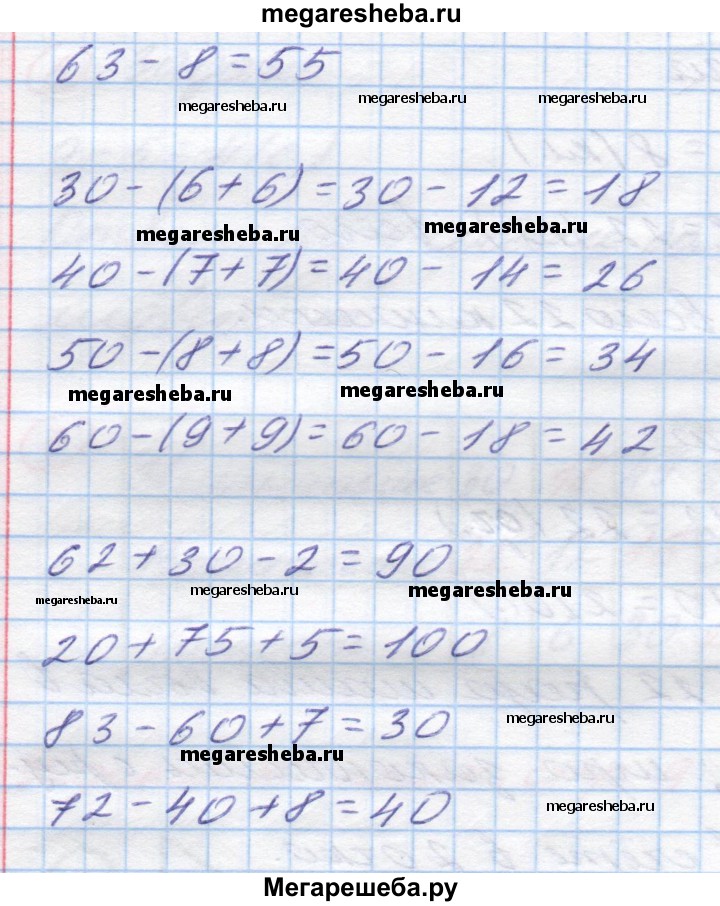 megaresheba.ru
63 - 8 = 55
megaresheba.ru megaresheba.ru megaresheba.ru
30 - (6 + 6) = 30 - 12 = 18
megaresheba.ru megaresheba.ru
40 - (7 + 7) = 40 - 14 = 26
50 - (8 + 8) = 50 - 16 = 34
megaresheba.ru megaresheba.ru
60 - (9 + 9) = 60 - 18 = 42
62 + 30 - 2 = 90
megaresheba.ru megaresheba.ru megaresheba.ru
20 + 75 + 5 = 100
83 - 60 + 7 = 30
megaresheba.ru megaresheba.ru
72 - 40 + 8 = 40
megaresheba.ru
Мегарешеба.ру